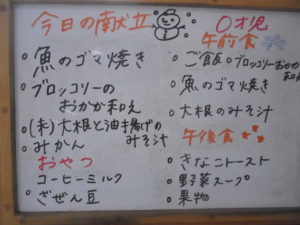 今日の献立
。魚のゴマ焼き
。ブロッコリーの
おかか和え
。(未)大根と油揚げの
みそ汁
。みかん
おやつ
。コーヒーミルク
。ざぜん豆
0才児
午前食
。ご飯。ブロッコリーおかか
和え
。魚のゴマ焼き
。大根のみそ汁
午後食
。きなこトースト
。野菜スープ
。果物